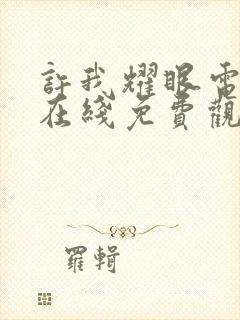 許我耀眼電
在綫免費觀
羅輯